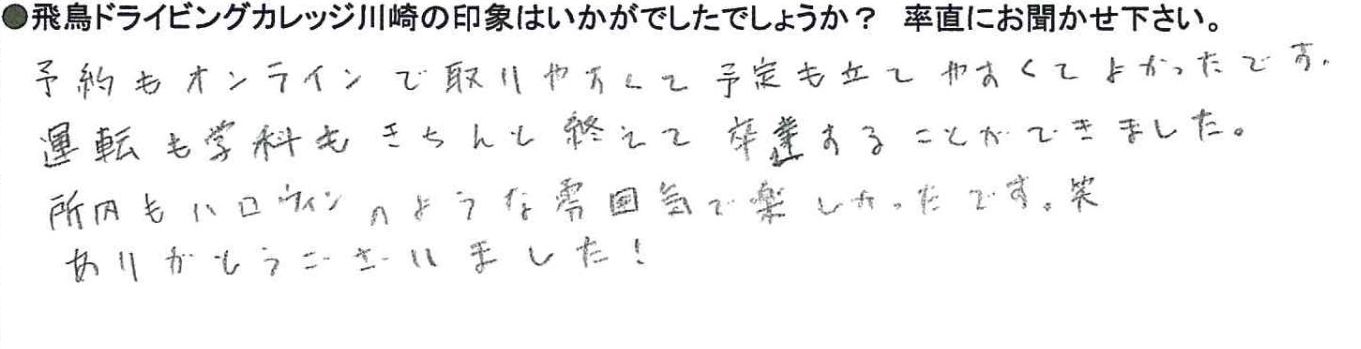 ●飛鳥ドライビングカレッジ川崎の印象はいかがでしたでしょうか？ 率直にお聞かせ下さい。
予約もオンラインで取りやすくて予定も立てやすくてよかったです。
運転も学科もきちんと終えて卒業することができました。
所内もハロウィンのような雰囲気で楽しかったです。笑
ありがとうございました！